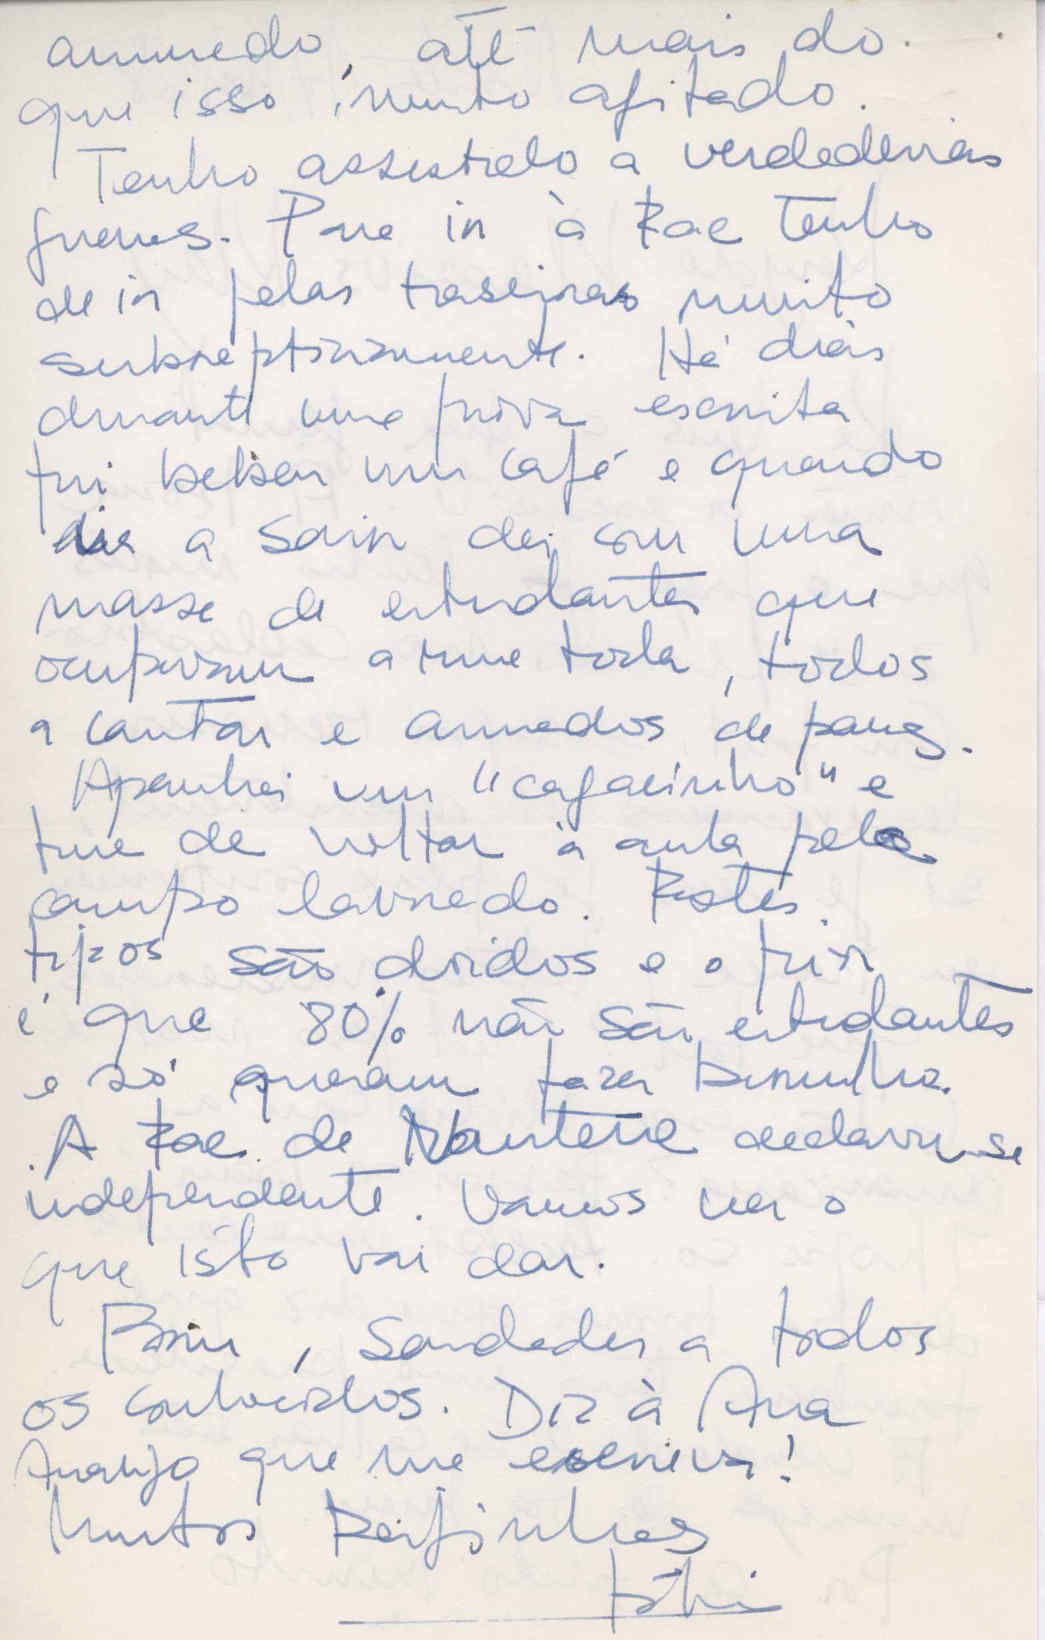 arruvedo, até mais do
que isso, muito agitado.
Tenho assistido a verdadeiras
guerras. Para ir à Fac tenho
de ir pelas traseiras muito
subrepticiamente. Há dias
durante uma prova escrita
fui beber um café e quando
ia a sair dei com uma
massa de estudantes que
ocupavam a rua toda, todos
a cantar e armados de paus.
Apanhei um "cagacinho" e
tive de voltar à aula pelo
campo lavrado. Estes
tipos são doidos e o pior
é que 80% não são estudantes
e só querem fazer barulho.
A Fac de Nanterre declarou-se
independente. Vamos ver o
que isto vai dar.
Bom, saudades a todos
os conhecidos. Diz à Ana
Araujo que me escreva!
Muitos Beijinhos